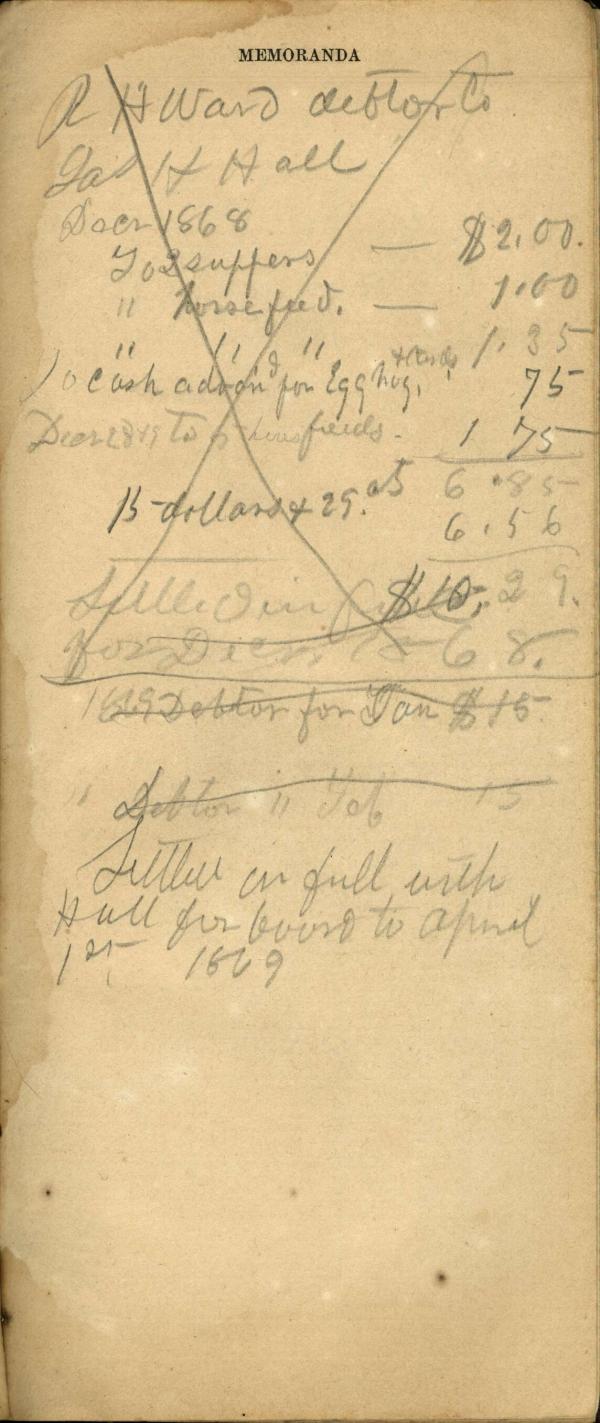 MEMORANDA
R H Ward debtor to
Jas H Hall
Decr 1868
To 2 suppers — $2.00.
" horse feed. — 1.00
" " " 1.35
To cash advancd for Egg hog, 75
Decr to 5 horse feeds. 1 75
6.85
15 dollars & 29.cts 6.56
$10, 29.
Settled in full
for Decr 1868.
1869 Debtor for Jan $15
" Debtor " Feb 15
Settled in full with
Hall for board to April
1st 1869